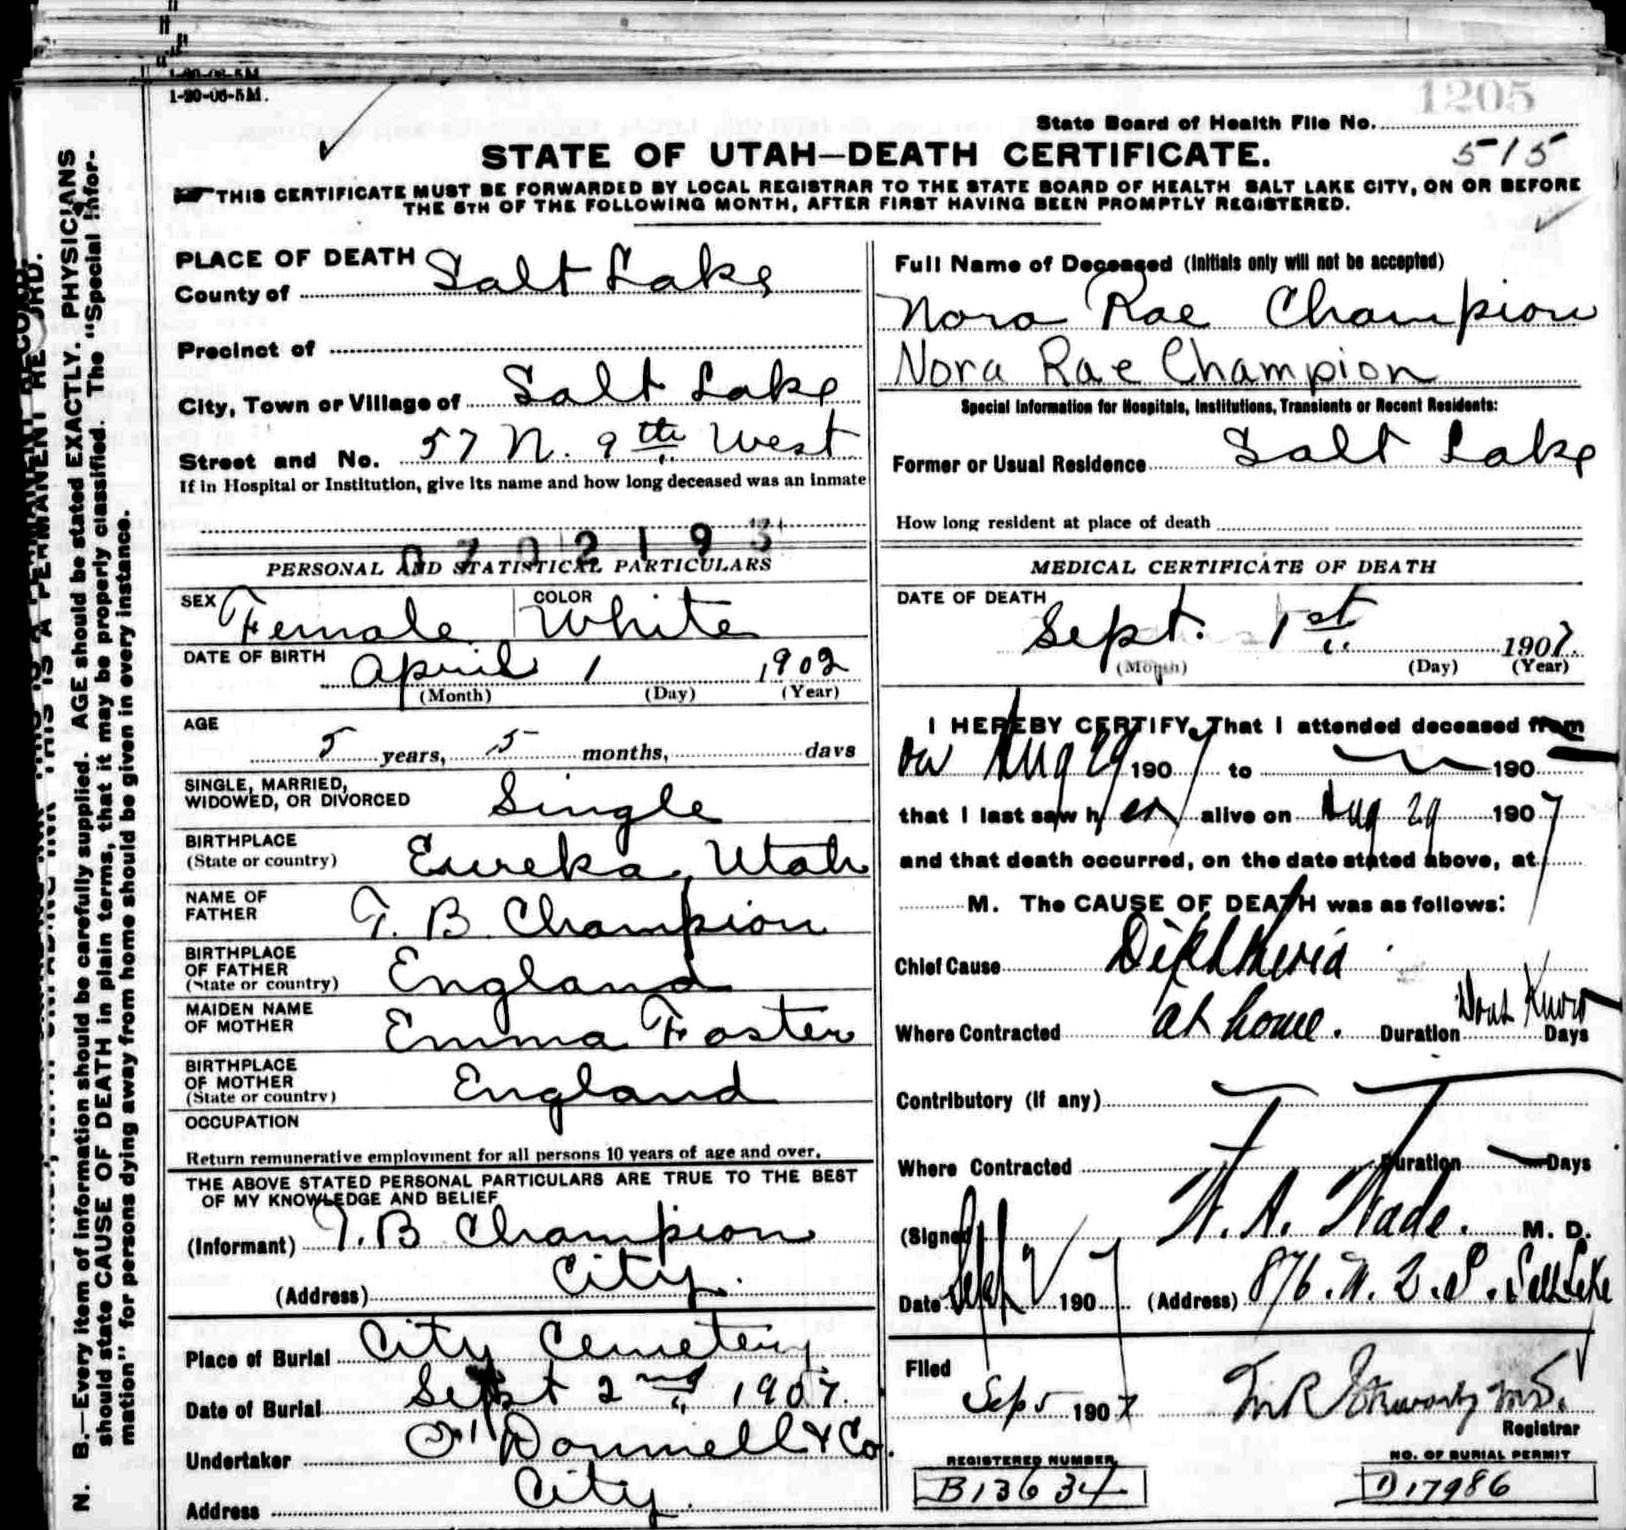 1-20-06-5M.
1205
State Board of Health File No.
515
STATE OF UTAH—DEATH CERTIFICATE.
THIS CERTIFICATE MUST BE FORWARDED BY LOCAL REGISTRAR TO THE STATE BOARD OF HEALTH SALT LAKE CITY, ON OR BEFORE
THE 5TH OF THE FOLLOWING MONTH, AFTER FIRST HAVING BEEN PROMPTLY REGISTERED.
N. B.—Every item of information should be carefully supplied. AGE should be stated EXACTLY. PHYSICIANS
should state CAUSE OF DEATH in plain terms, that it may be properly classified. The "Special Infor-
mation" for persons dying away from home should be given in every instance.
THIS IS A PERMANENT RECORD.
PLACE OF DEATH
County of Salt Lake
Precinct of
City, Town or Village of Salt Lake
Street and No. 57 N. 9th West
If in Hospital or Institution, give its name and how long deceased was an inmate
0702193
PERSONAL AND STATISTICAL PARTICULARS
SEX Female COLOR White
DATE OF BIRTH April 1 1902
(Month) (Day) (Year)
AGE
5 years, 5 months, days
SINGLE, MARRIED,
WIDOWED, OR DIVORCED Single
BIRTHPLACE
(State or country) Eureka, Utah
NAME OF
FATHER T. B. Champion
BIRTHPLACE
OF FATHER
(State or country) England
MAIDEN NAME
OF MOTHER Emma Foster
BIRTHPLACE
OF MOTHER
(State or country) England
OCCUPATION
Return remunerative employment for all persons 10 years of age and over.
THE ABOVE STATED PERSONAL PARTICULARS ARE TRUE TO THE BEST
OF MY KNOWLEDGE AND BELIEF
(Informant) T. B Champion
(Address) City.
Place of Burial City Cemetery
Date of Burial Sept 2nd 1907.
Undertaker O'Donnell & Co.
Address City.
Full Name of Deceased (Initials only will not be accepted)
Nora Rae Champion
Nora Rae Champion
Special Information for Hospitals, Institutions, Transients or Recent Residents:
Former or Usual Residence Salt Lake
How long resident at place of death
MEDICAL CERTIFICATE OF DEATH
DATE OF DEATH
Sept. 1st. 1907.
(Month) (Day) (Year)
I HEREBY CERTIFY, That I attended deceased from
on Aug 29 1907 to 190
that I last saw her alive on Aug 29 1907
and that death occurred, on the date stated above, at
M. The CAUSE OF DEATH was as follows:
Chief Cause Diphtheria
Where Contracted at home. Duration Dont Know Days
Contributory (if any)
Where Contracted Duration Days
(Signed) Wade. M. D.
Date Sept 2 1907 (Address) 876. Salt Lake
Filed
Sep 5 1907
Registrar
REGISTERED NUMBER
B13634
NO. OF BURIAL PERMIT
D17986